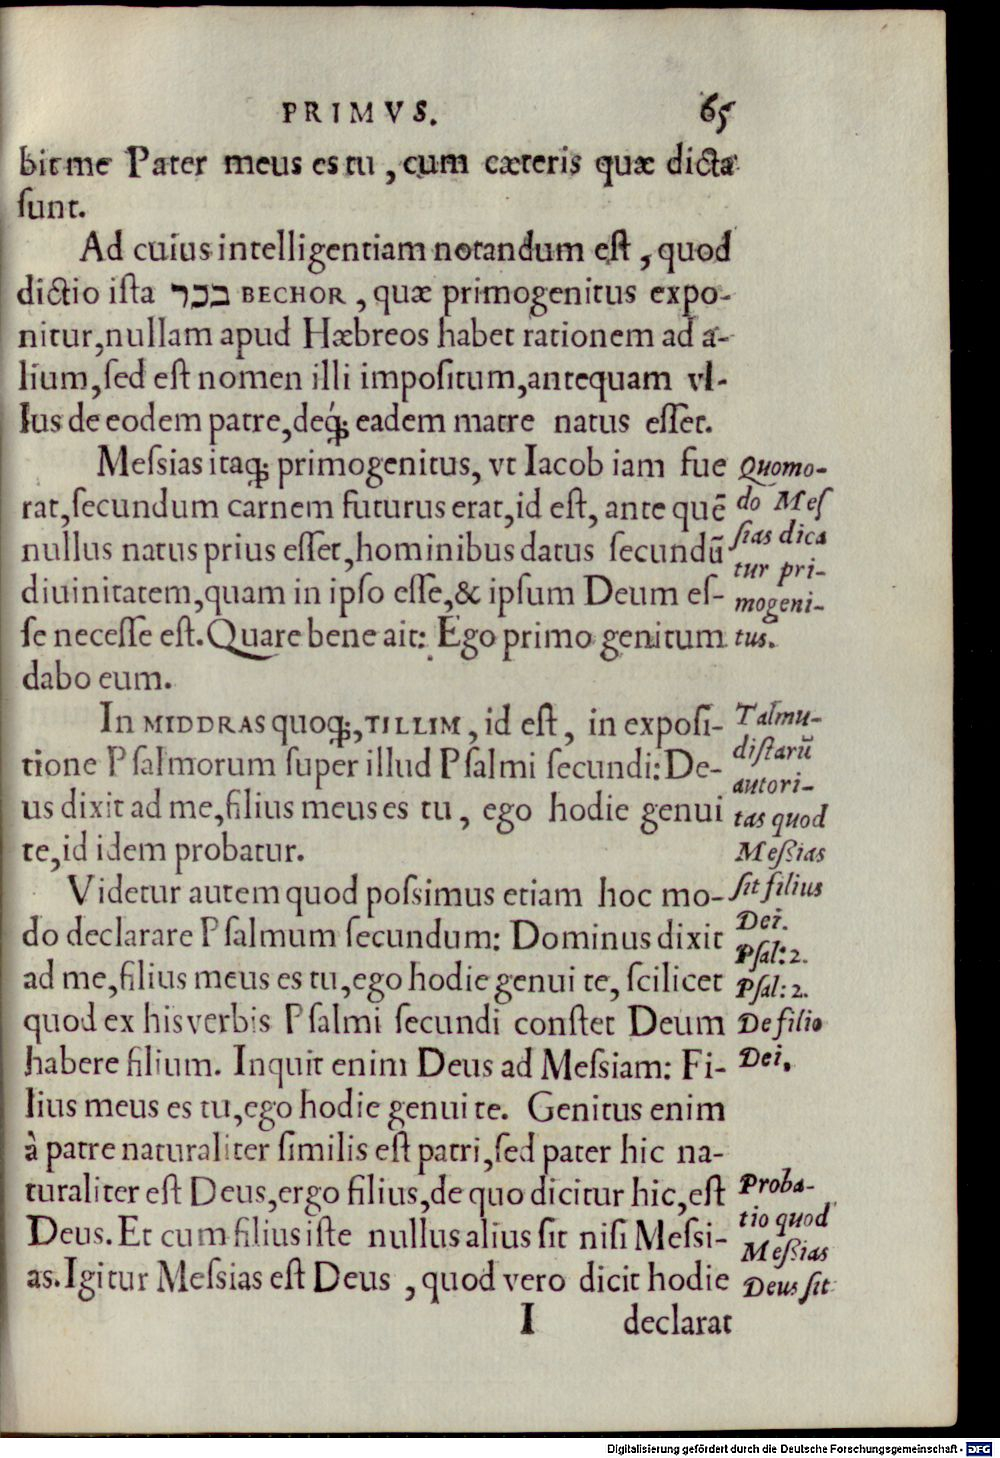 PRIMVS. 65
bit me Pater meus es tu, cum cæteris quæ dicta
ſunt.
Ad cuius intelligentiam notandum eſt, quod
dictio iſta בכר BECHOR, quæ primogenitus expo-
nitur, nullam apud Hæbreos habet rationem ad a-
lium, ſed eſt nomen illi impoſitum, antequam vl-
lus de eodem patre, deq́; eadem matre natus eſſet.
Meſsias itaq; primogenitus, vt Iacob iam fue
rat, ſecundum carnem futurus erat, id eſt, ante quē
nullus natus prius eſſet, hominibus datus ſecundū
diuinitatem, quam in ipſo eſſe, & ipſum Deum eſ-
ſe neceſſe eſt. Quare bene ait: Ego primo genitum
dabo eum.
Quomo-
do Meſ
ſias dica
tur pri-
mogeni-
tus.
In MIDDRAS quoq;, TILLIM, id eſt, in expoſi-
tione Pſalmorum ſuper illud Pſalmi ſecundi: De-
us dixit ad me, filius meus es tu, ego hodie genui
te, id idem probatur.
Videtur autem quod poſsimus etiam hoc mo-
do declarare Pſalmum ſecundum: Dominus dixit
ad me, filius meus es tu, ego hodie genui te, ſcilicet
quod ex his verbis Pſalmi ſecundi conſtet Deum
habere filium. Inquit enim Deus ad Meſsiam: Fi-
lius meus es tu, ego hodie genui te. Genitus enim
à patre naturaliter ſimilis eſt patri, ſed pater hic na-
turaliter eſt Deus, ergo filius, de quo dicitur hic, eſt
Deus. Et cum filius iſte nullus alius ſit niſi Meſsi-
as. Igitur Meſsias eſt Deus, quod vero dicit hodie
Talmu-
diſtarū
autori-
tas quod
Meßias
ſit filius
Dei.
Pſal: 2.
Pſal: 2.
De filio
Dei.
Proba-
tio quod
Meßias
Deus ſit
I declarat
Digitalisierung gefördert durch die Deutsche Forschungsgemeinschaft - DFG